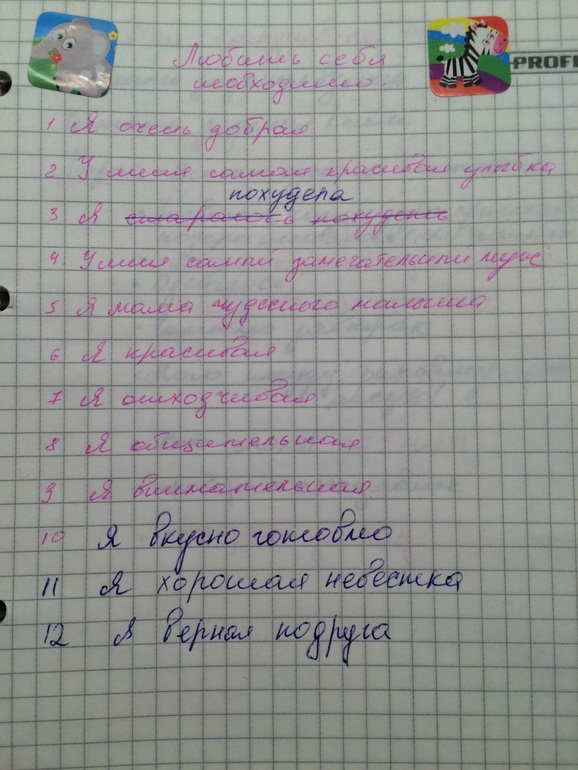 PROFI
Любить себя
необходимо
1 Я очень добрая
2 У меня самая красивая улыбка
похудела
3 Я стараюсь похудеть
4 У меня самый замечательный муж
5 Я мама чудесного малыша
6 Я красивая
7 Я отходчивая
8 Я общительная
9 Я внимательная
10 Я вкусно готовлю
11 Я хорошая невестка
12 Я верная подруга